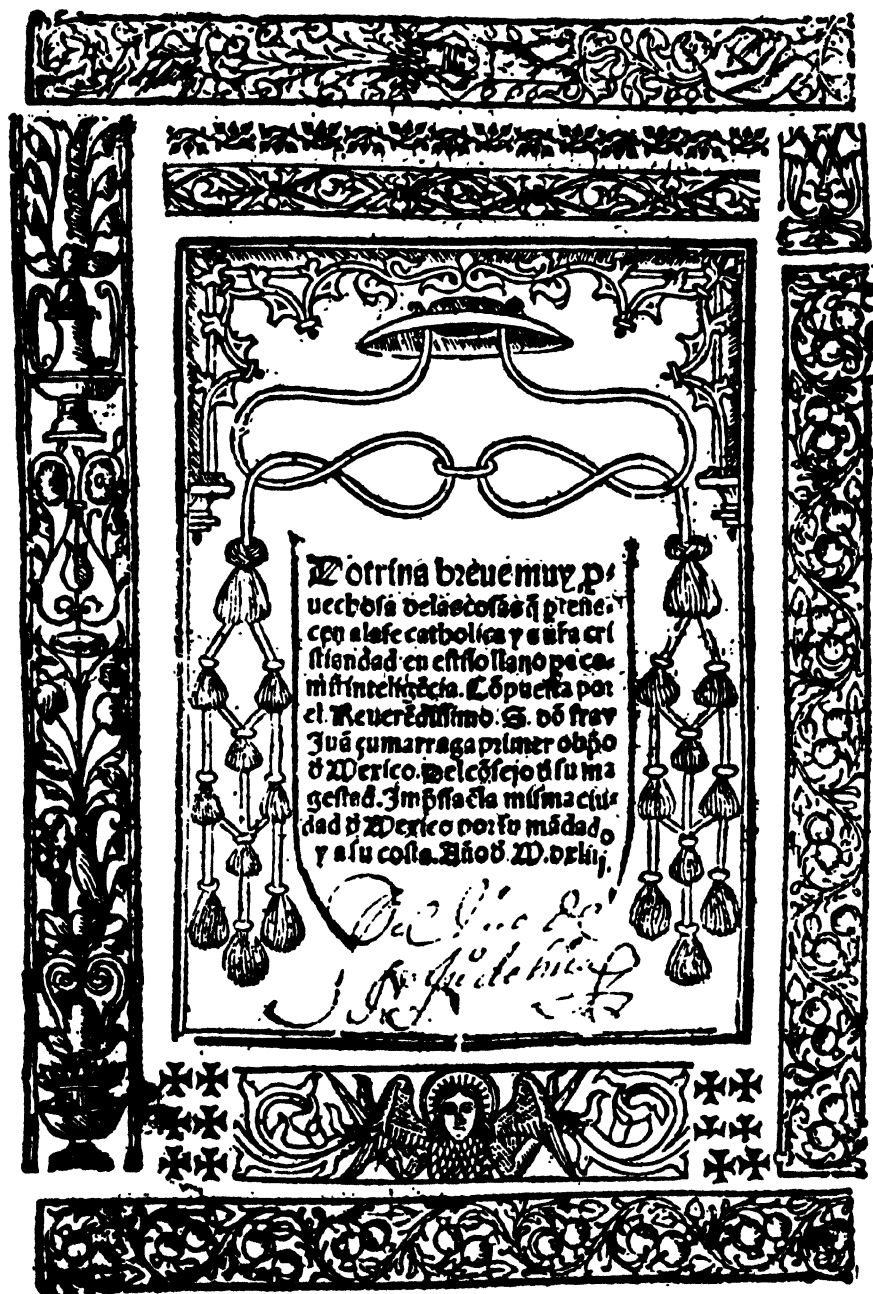 Dotrina breue muy p-
uechosa delas cosas q̃ ptene-
cen ala fe catholica y a nr̃a cri
stiandad en estilo llano pa co-
mũ inteligẽcia. Cõpuesta por
el. Reuerẽdissimo. S. dõ fray
Juã çumarraga primer obp̃o
d̃ Mexico. Del cõsejo d̃ su ma
gestad. Imp̃ssa ẽla misma ciu-
dad d̃ Mexico por su mãdado
y a su costa. Año d̃. M.dxliij.